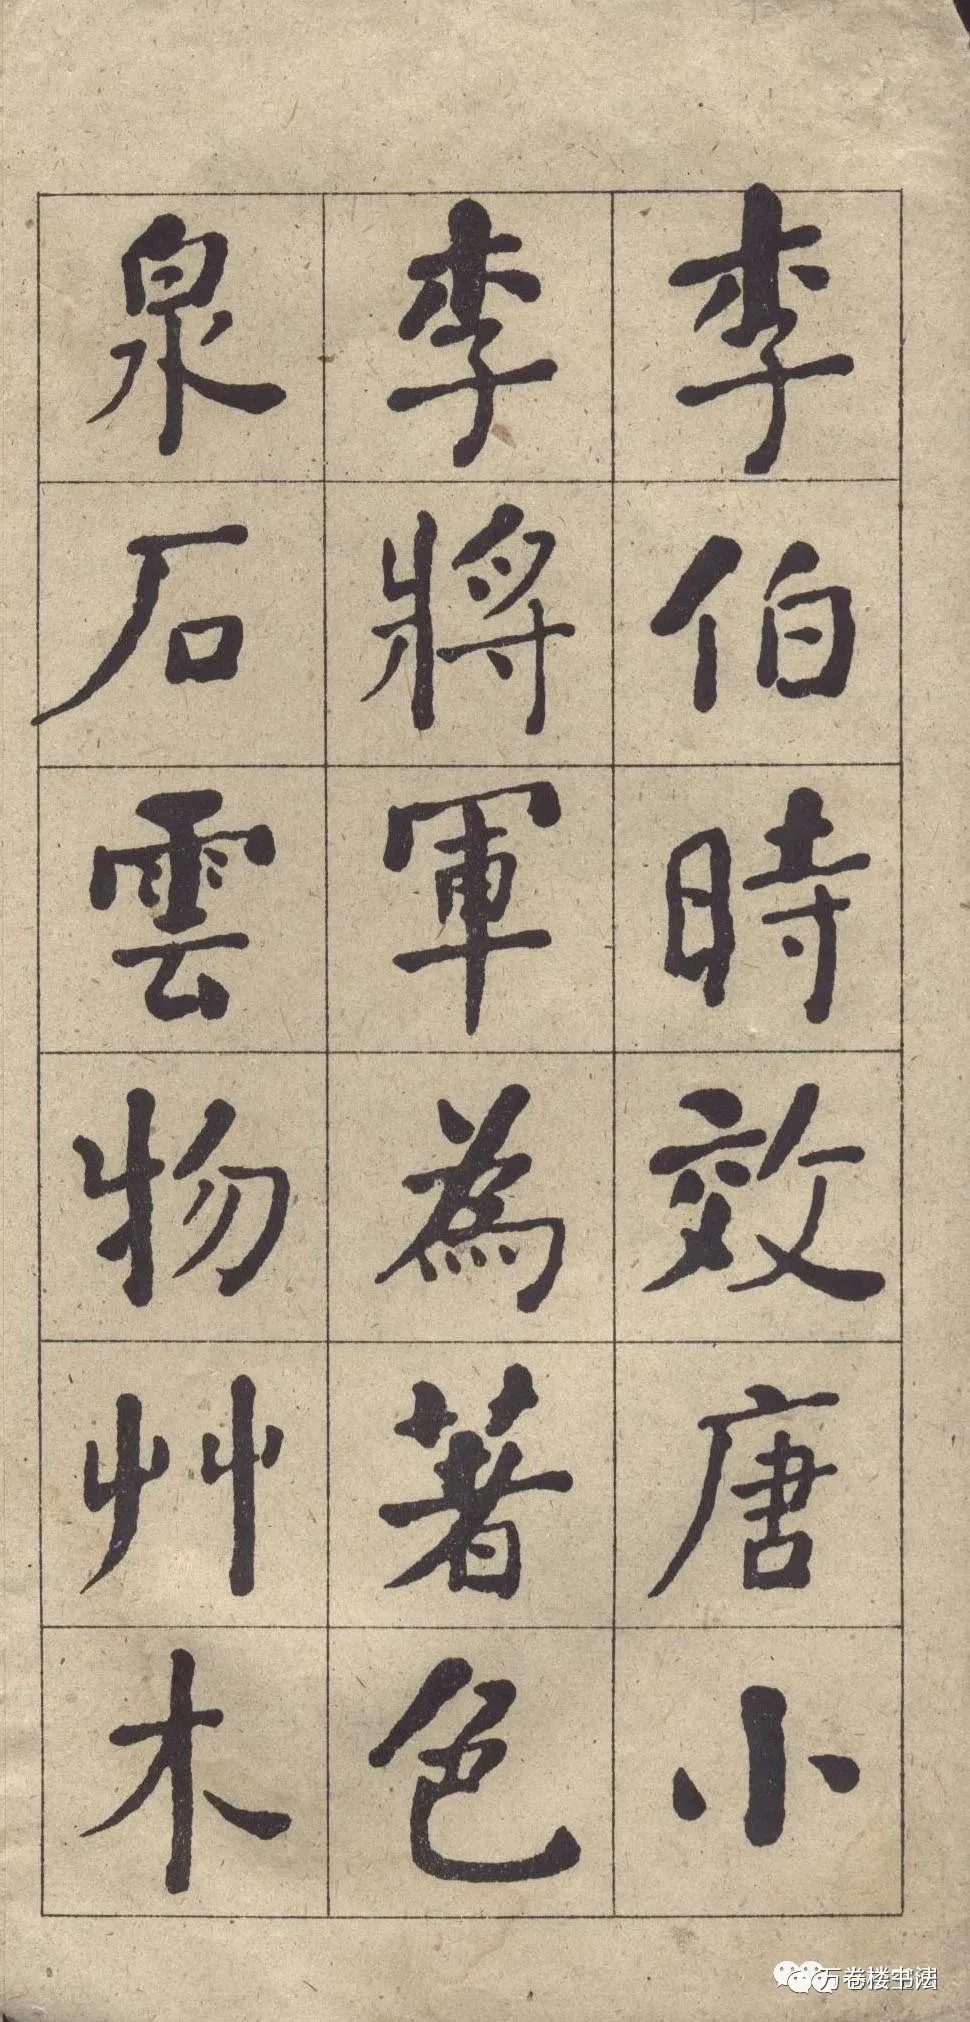 李伯時效唐小
李將軍為著色
泉石雲物艸木
万卷楼书法